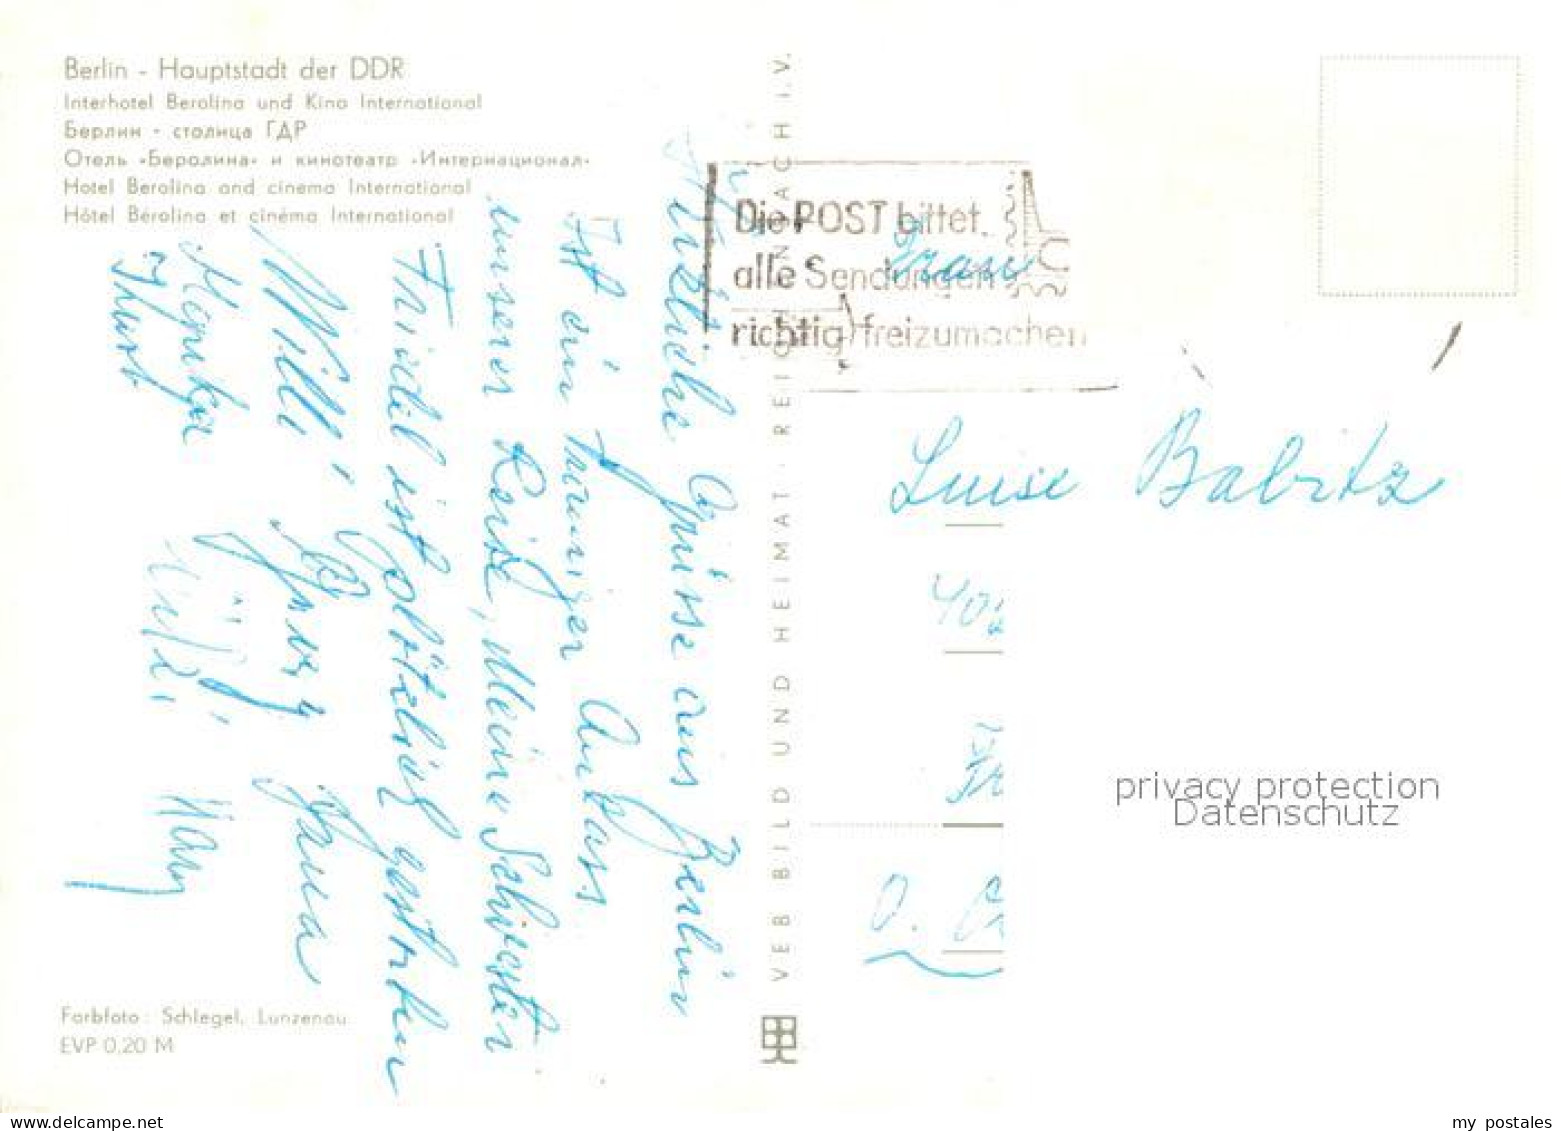 Berlin - Hauptstadt der DDR
Interhotel Berolina und Kino International
Берлин - столица ГДР
Отель «Беролина» и кинотеатр «Интернационал»
Hotel Berolina and cinema International
Hôtel Bérolina et cinéma International
Herzliche Grüsse aus Berlin
Ist ein trauriger Anlass
unserer Reise, Meine Schwester
Friedel ist plötzlich gestorben
Willi,
Farbfoto: Schlegel, Lunzenau
EVP 0,20 M
VEB BILD UND HEIMAT · REICHENBACH I.V.
Die POST bittet,
alle Sendungen
richtig freizumachen
Frau
Luise Babitz
privacy protection
Datenschutz
my postales
www.delcampe.net